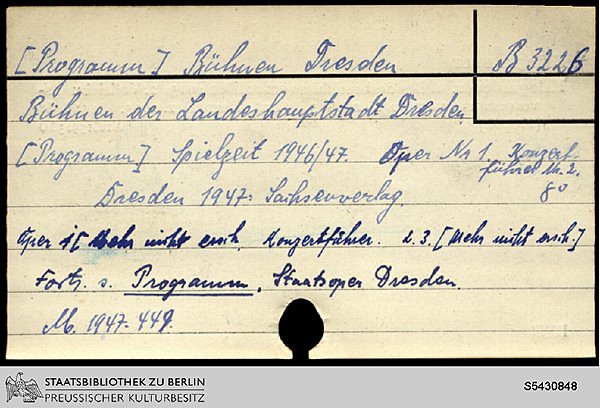 [Programm] Bühnen Dresden B 3226
Bühnen der Landeshauptstadt Dresden.
[Programm] Spielzeit 1946/47. Oper Nr 1. Konzert-
führer Nr. 2.
Dresden 1947: Sachsenverlag. 8°
Oper 1 [Mehr nicht ersch. Konzertführer. 2.3. [Mehr nicht ersch.]
Forts. s. Programm, Staatsoper Dresden.
M. 1947. 449.
STAATSBIBLIOTHEK ZU BERLIN
PREUSSISCHER KULTURBESITZ
S5430848